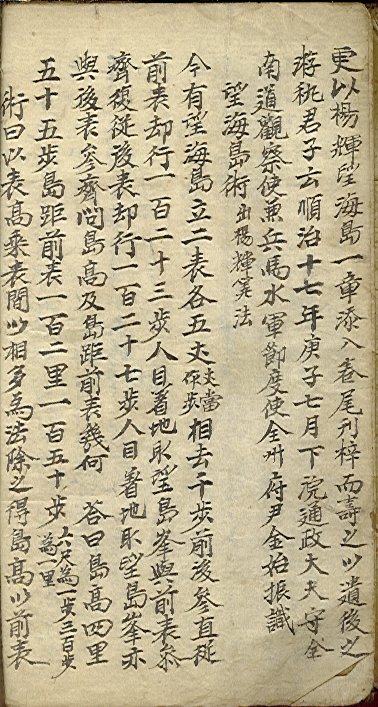 更以楊輝望海島一章添入卷尾刊梓而壽之以遺後之
游執君子云順治十七年庚子七月下浣通政大夫守全
南道觀察使兼兵馬水軍節度使全州府尹金始振識
望海島術 出楊輝筭法
今有望海島立二表各五丈 丈當作步 相去千步前後參直從
前表却行一百二十三步人目着地取望島峯與前表參
齊復從後表却行一百二十七步人目着地取望島峯亦
與後表參齊問島高及島距前表幾何 答曰島高四里
五十五步島距前表一百二里一百五十步 六尺為一步三百步為一里
術曰以表高乘表間以相多為法除之得島高以前表